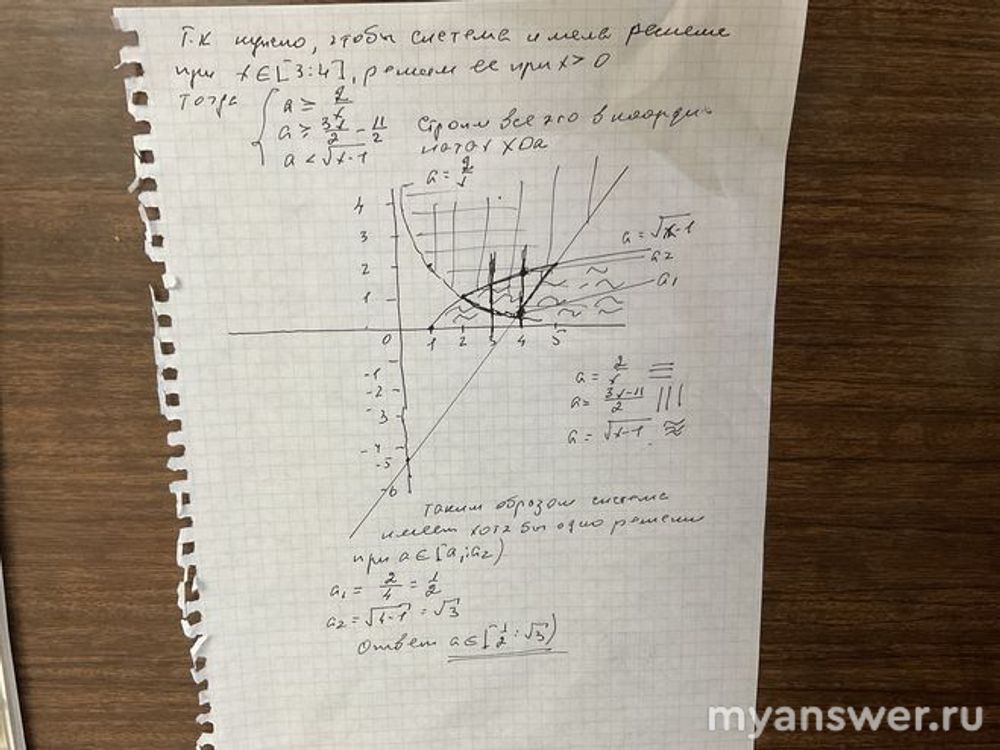 Т.к нужно, чтобы система имела решение
при x∈[3;4], решаем ее при x>0
Тогда { a ≥ 2/x
a ≥ 3x/2 - 11/2
a < √x-1
Строим все это в коорди
натах XOa
a = 2/x
4
3
2
1
0 1 2 3 4 5
-1
-2
-3
-4
-5
-6
a = √x-1
a2
a1
a = 2/x
a = 3x-11/2
a = √x-1
Таким образом система
имеет хотя бы одно решение
при a∈[a1;a2)
a1 = 2/4 = 1/2
a2 = √4-1 = √3
Ответ a∈[1/2;√3)
myanswer.ru